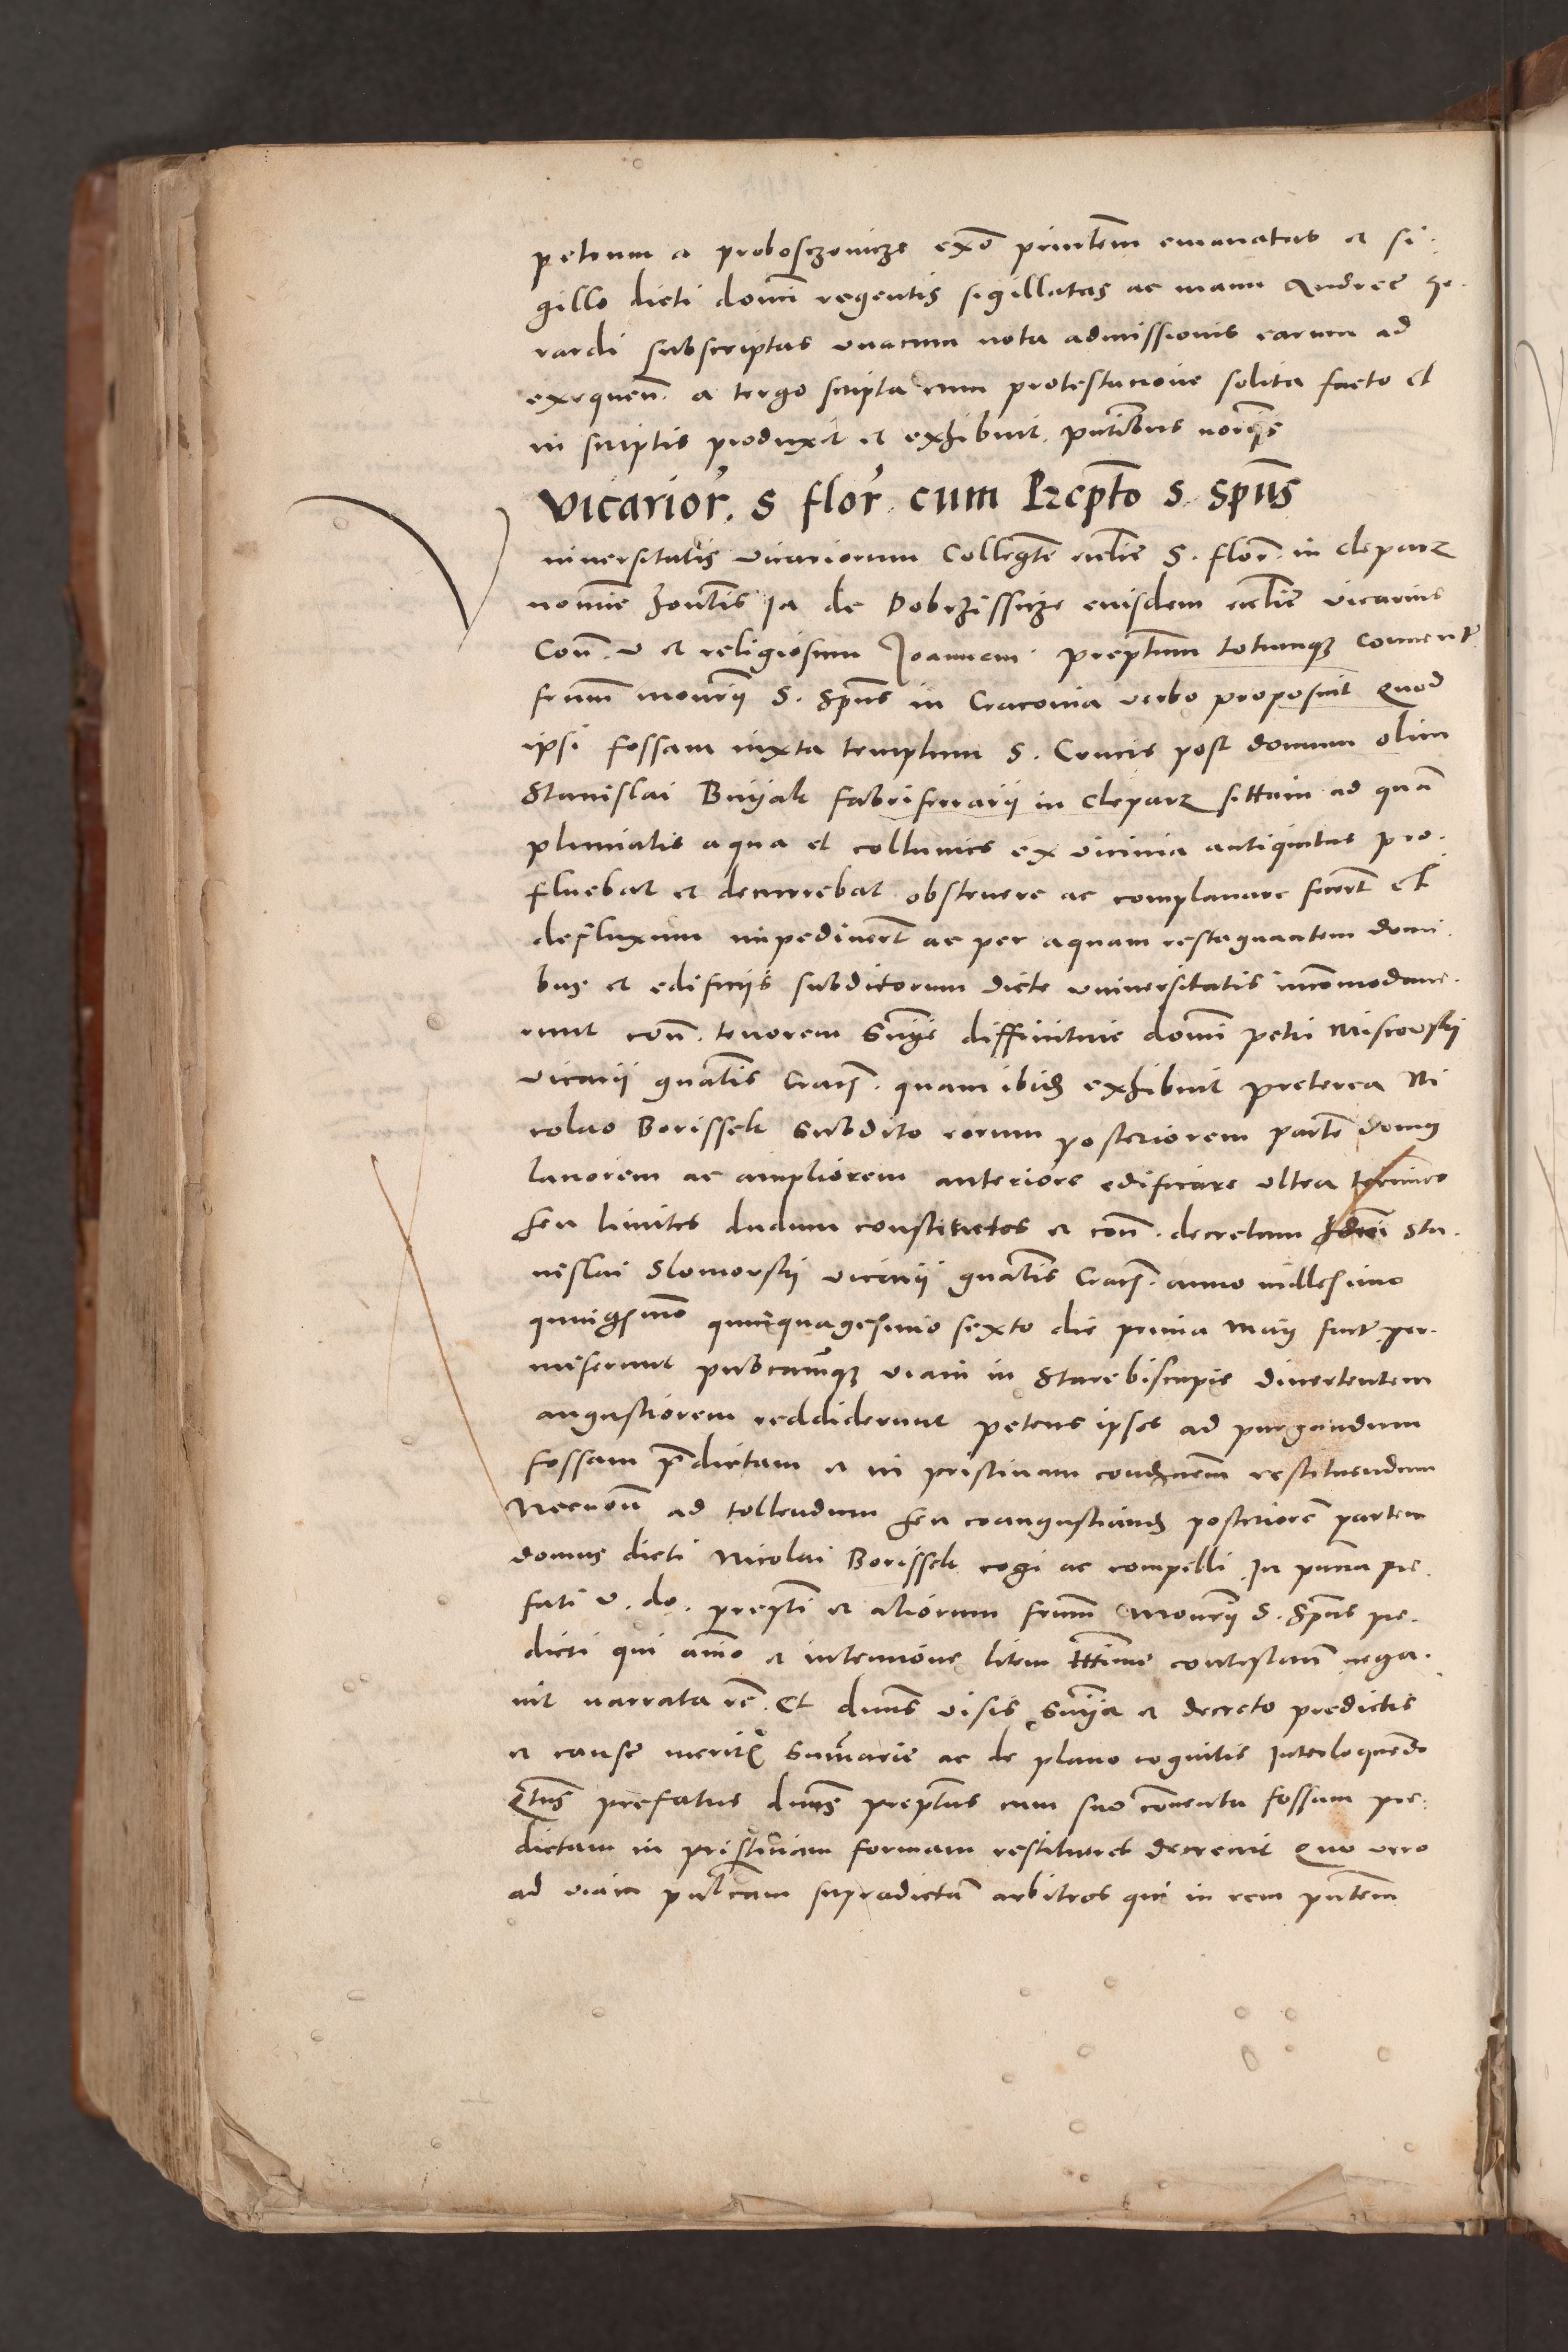 petrum a proboszowicze exō pñntem emanatas et si.
gillo dicti domĩ regentis sigillatas ac manu Andree
rardi subscriptas vnacum nota admissionis earum ad
exequeñ. a tergo scripta cum protestacione solita facto et
in scriptis produxit et exhibuit. pñtibus
Vicarior. S flor. cum Preptō S. Spũs
Vniversitatis vicariorum Collegte ecclie S. flor. in Cleparz
nomine Ja de Dobrzissicze eiusdem ecclie vicarius
Coñ. v et religiosum Joannem preptum totumq3 Conuent
frum monrii S. Spũs in Cracovia verbo proposuit Quod
ipsi fossam iuxta templum S. Crucis post domum olim
Stanislai Buyak fabriferarii in Cleparz sittam ad quã
pluuialis aqua et colluuies ex vicinia antiquitus pro.
fluebat et decurrebat obstruere ac complanare fecert et
defluxum impediuert ac per aquam restagnantem domi.
bus et edificiis subditorum dicte vniuersitatis incõmodaue.
runt coñ. tenorem sñie diffinitiue domĩ petri Miscowskij
vicarii gnãlis Crac. quam ibid exhibuit preterea Ni
colao Borissek Subdito eorum posteriorem parte domus
lanorem ac ampliorem anteriore edificare vltra terminos
seu limites dudum constitutos et coñ. decretum domĩ Sta.
nislai Slomovskij vicarii gnãlis Crac. anno millesimo
quingsmo quinquagesimo sexto die prima Maij fact per.
miserunt pubcamq3 viam in Starebiscupie diuertentem
angustiorem reddiderunt petens ipsos ad purgandum
fossam p̃dictam et in pristinam condnem restituendum
Necnoñ ad tollendum seu coangustiand posteriorẽ partem
domus dicti Nicolai Borissek cogi ac compelli In pñcia pre.
fati v. do. prepti et aliorum frum Monrii S. Spũs pre.
dicti qui aĩo et intencione litem ltime contestañ nega.
uit narrata rẽ. Et dnus visis sñia et decreto predictis
et cause merit summarie ac de plano cognitis Interloquendo
Qtus prefatus dnus preptus cum suo cõuentu fossam pre.
dictam in pristinam formam restitueret decreuit Quo vero
ad viam publcam supradictã arbitros qui in rem pñtem